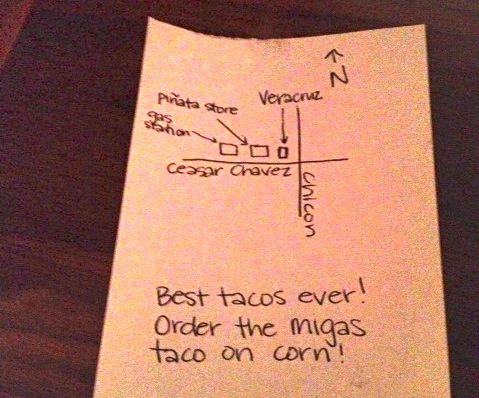 N
Veracruz
Piñata store
gas
station
Ceasar Chavez
Chicon
Best tacos ever!
Order the migas
taco on corn!